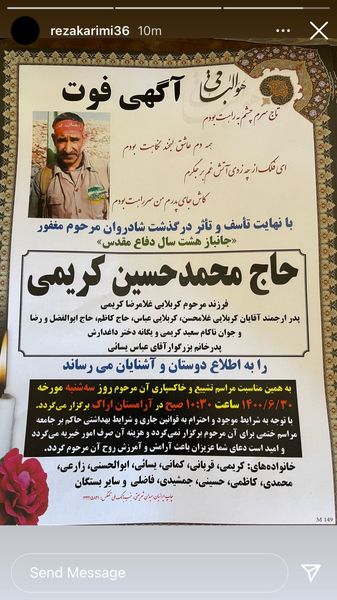 rezakarimi36 10m
هوالباقی
آگهی فوت
تاج سرم چشم به راهت بودم
همه دم عاشق لبخند نگاهت بودم
ای فلک از چه زدی آتش غم بر جگرم
کاش جای پدرم من سر راهت بودم
با نهایت تأسف و تأثر درگذشت شادروان مرحوم مغفور
«جانباز هشت سال دفاع مقدس»
حاج محمدحسین کریمی
فرزند مرحوم کربلایی غلامرضا کریمی
پدر ارجمند آقایان کربلایی غلامحسن، کربلایی عباس، حاج کاظم، حاج ابوالفضل و رضا
و جوان ناکام سعید کریمی و یگانه دختر داغدارش
پدرخانم بزرگوار آقای عباس یسائی
را به اطلاع دوستان و آشنایان می رساند
به همین مناسبت مراسم تشییع و خاکسپاری آن مرحوم روز سه‌شنبه مورخه
۱۴۰۰/۶/۳۰ ساعت ۱۰:۳۰ صبح در آرامستان اراک برگزار می‌گردد.
با توجه به شرایط موجود و احترام به قوانین جاری و شرایط بهداشتی حاکم بر جامعه
مراسم ختمی برای آن مرحوم برگزار نمی‌گردد و هزینه آن صرف امور خیریه می‌گردد
و امید است دعای شما عزیزان باعث آرامش و آمرزش روح آن مرحوم گردد.
خانواده‌های: کریمی، قربانی، کمانی، یسائی، ابوالحسنی، زارعی،
محمدی، کاظمی، حسینی، جمشیدی، فاضلی و سایر بستگان
M 149
Send Message